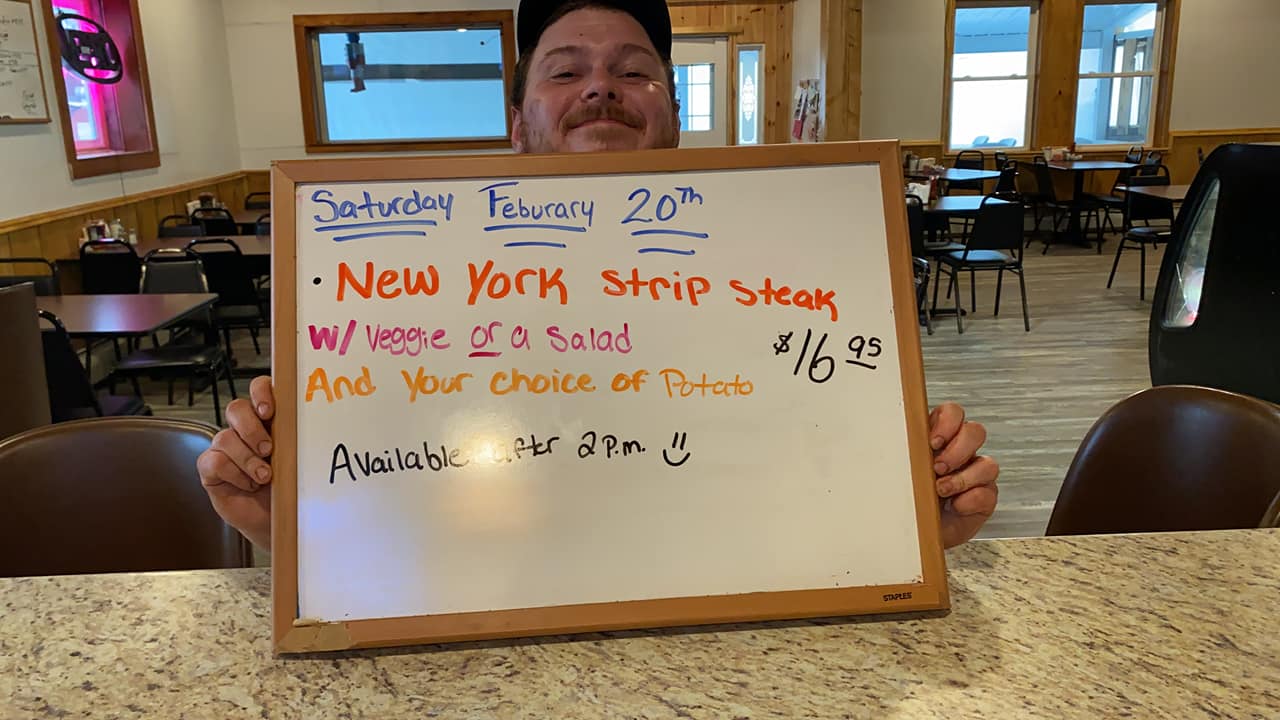 Saturday Feburary 20th
• New York strip steak
w/ veggie or a salad
$16 95
And Your choice of Potato
Available after 2 p.m. :)
STAPLES